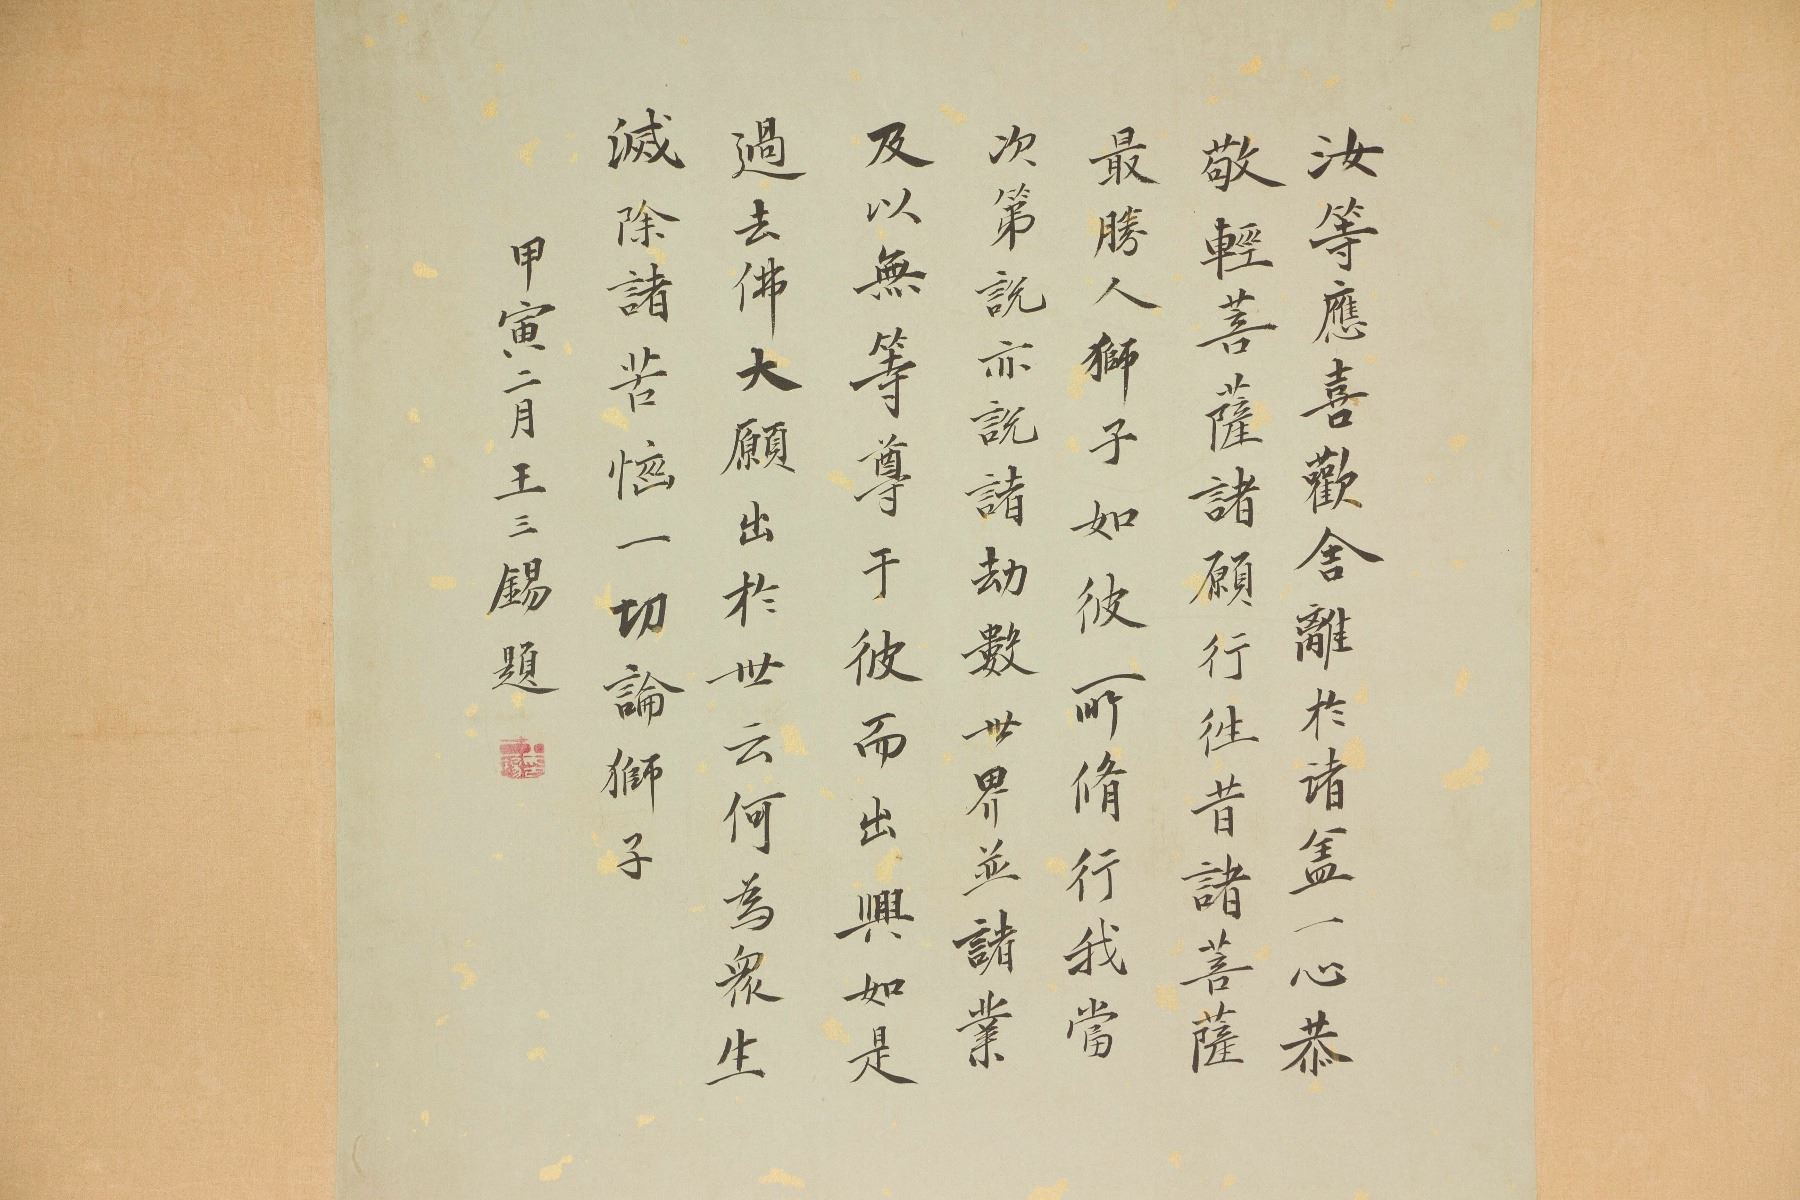 汝等應喜歡舍離於诸盖一心恭
敬輕菩薩諸願行徃昔諸菩薩
最勝人獅子如彼所脩行我當
次第説亦説諸劫數世界並諸業
及以無等尊于彼而出興如是
過去佛大願出於世云何為衆生
滅除諸苦惱一切論獅子
甲寅二月王三錫題